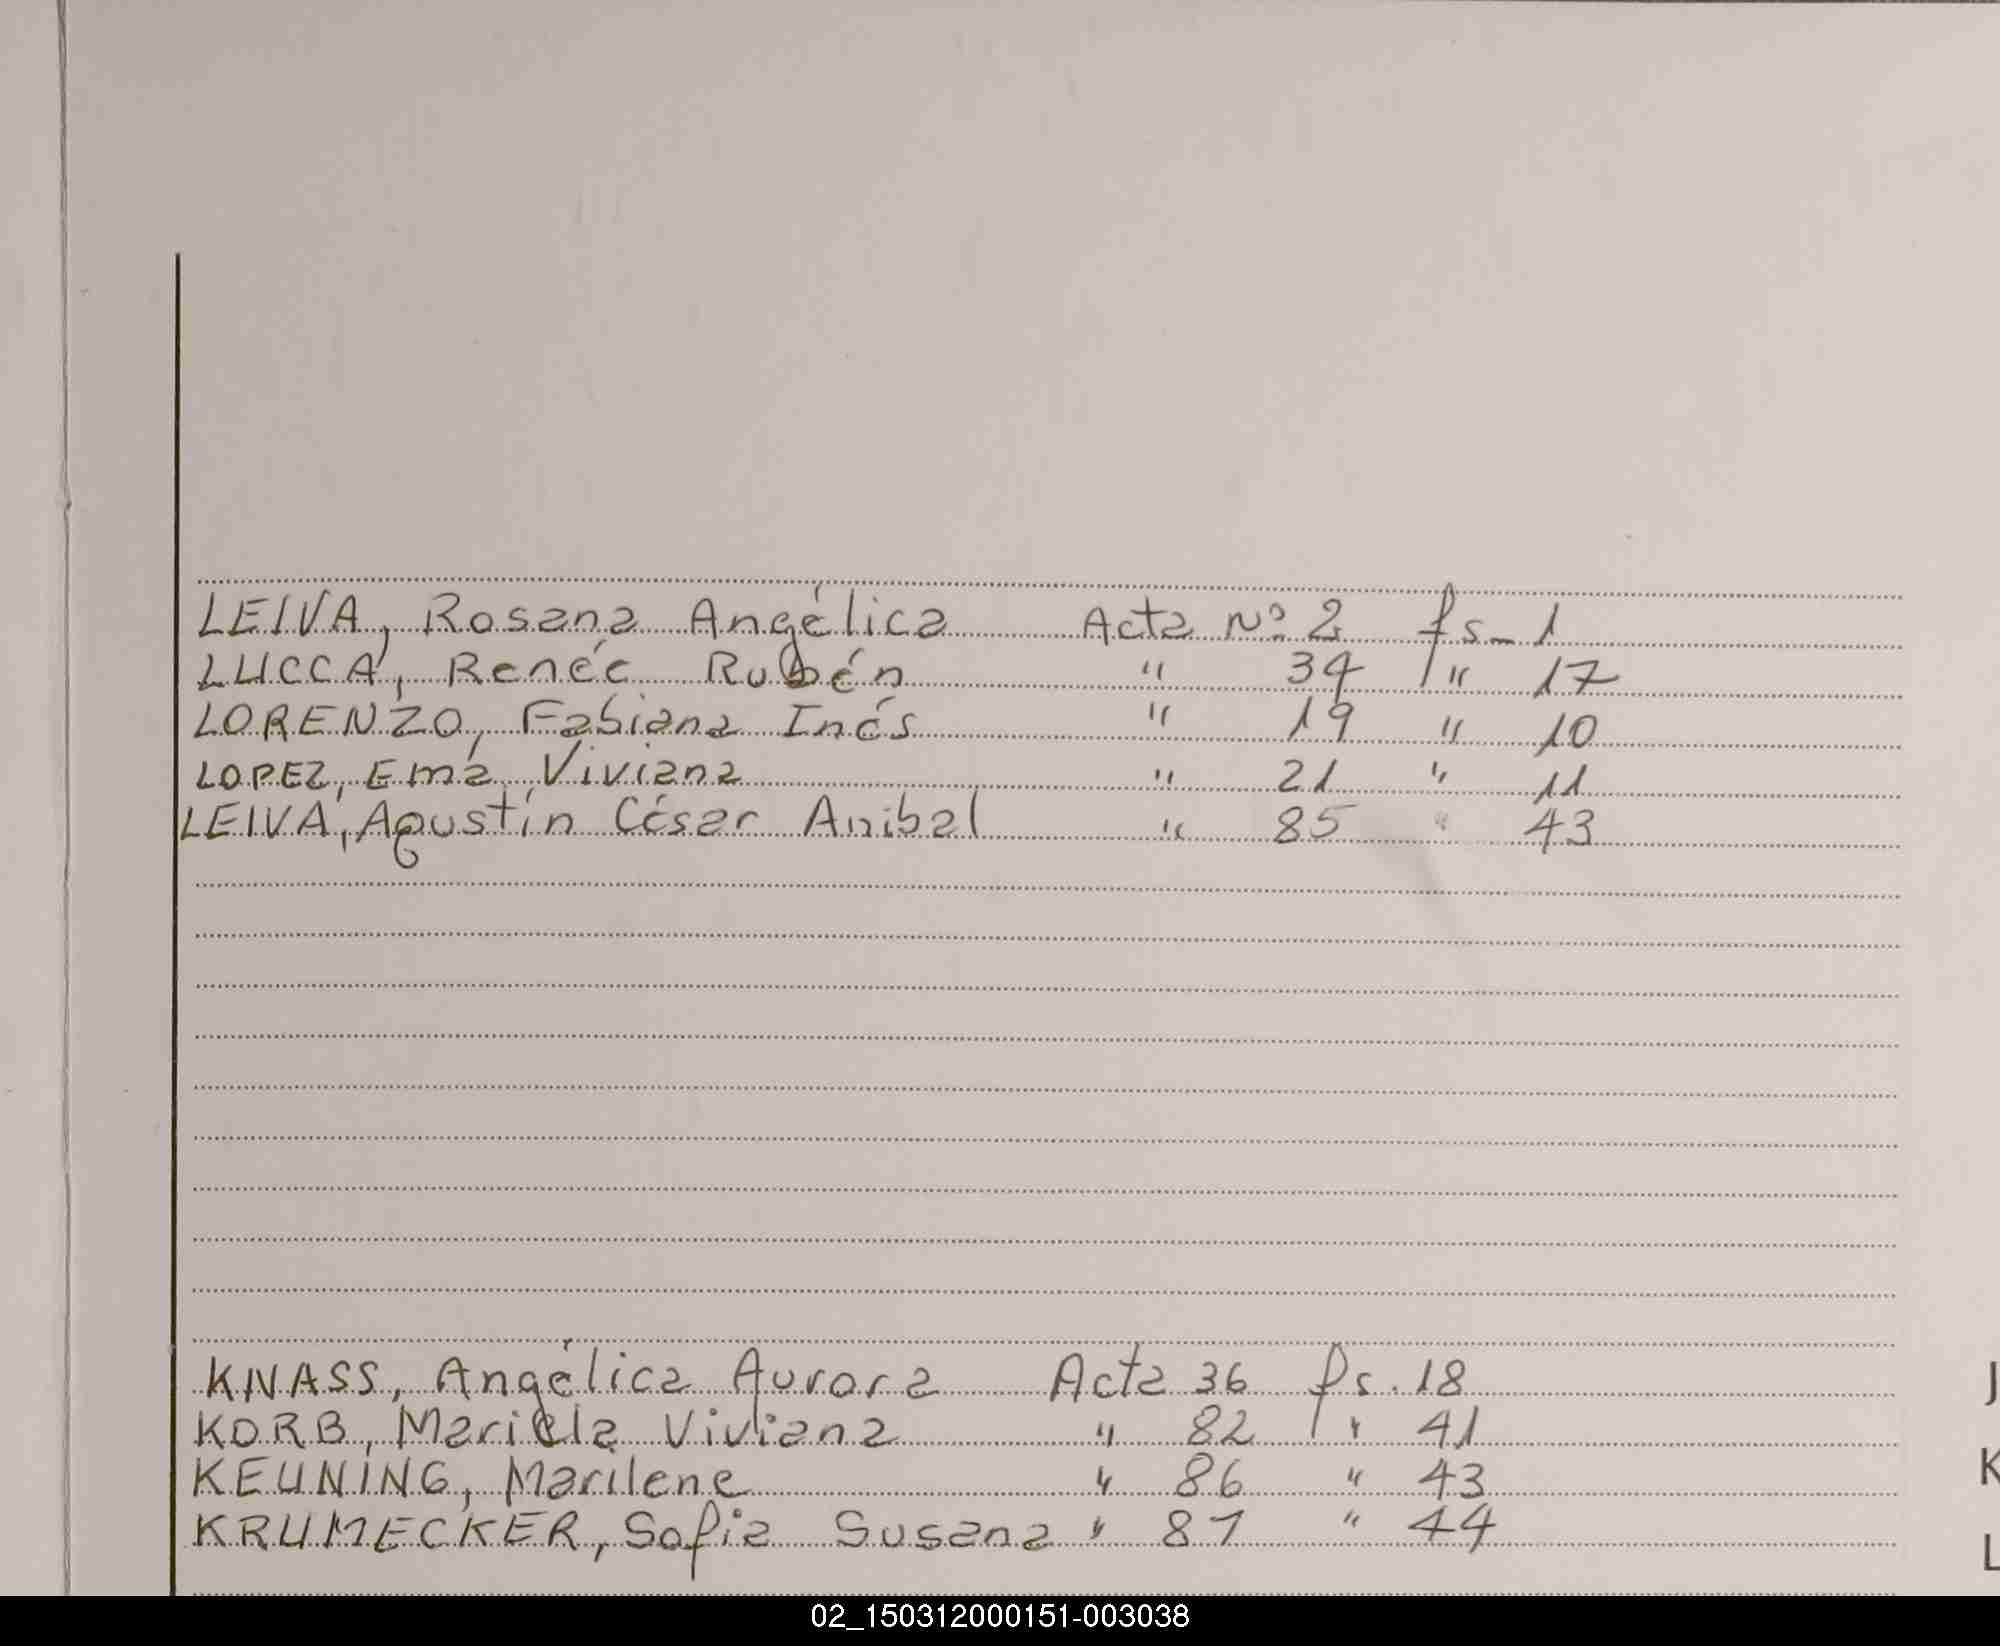 LEIVA, Rosana Angélica Acta Nº 2 fs- 1
LUCCA, Renée Rubén " 34 " 17
LORENZO, Fabiana Inés " 19 " 10
LOPEZ, Ema Viviana " 21 " 11
LEIVA, Agustín César Anibal " 85 " 43
KNASS, Angélica Aurora Acta 36 fs. 18
KORB, Mariela Viviana " 82 " 41
KEUNING, Marilene " 86 " 43
KRUMECKER, Sofia Susana " 87 " 44
J
K
L
02_150312000151-003038